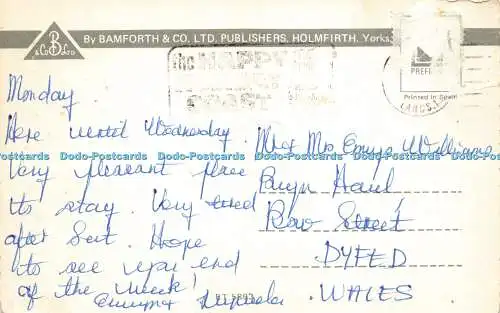 B
& Co Ltd
By BAMFORTH & CO. LTD. PUBLISHERS, HOLMFIRTH, Yorks.
the HAPPY
COAST
PREFI
Printed in Spain
LANCS.
Monday
Here until Wednesday.
Very pleasant place
to stay. Very tired
after Sat. Hope
to see you end
of the week!
Mr & Mrs Emrys Williams
Bryn Haul
Row Street
DYFED
WALES
Dodo-Postcards Dodo-Postcards Dodo-Postcards Dodo-Postcards Dodo-Postcards Dodo-Postcards